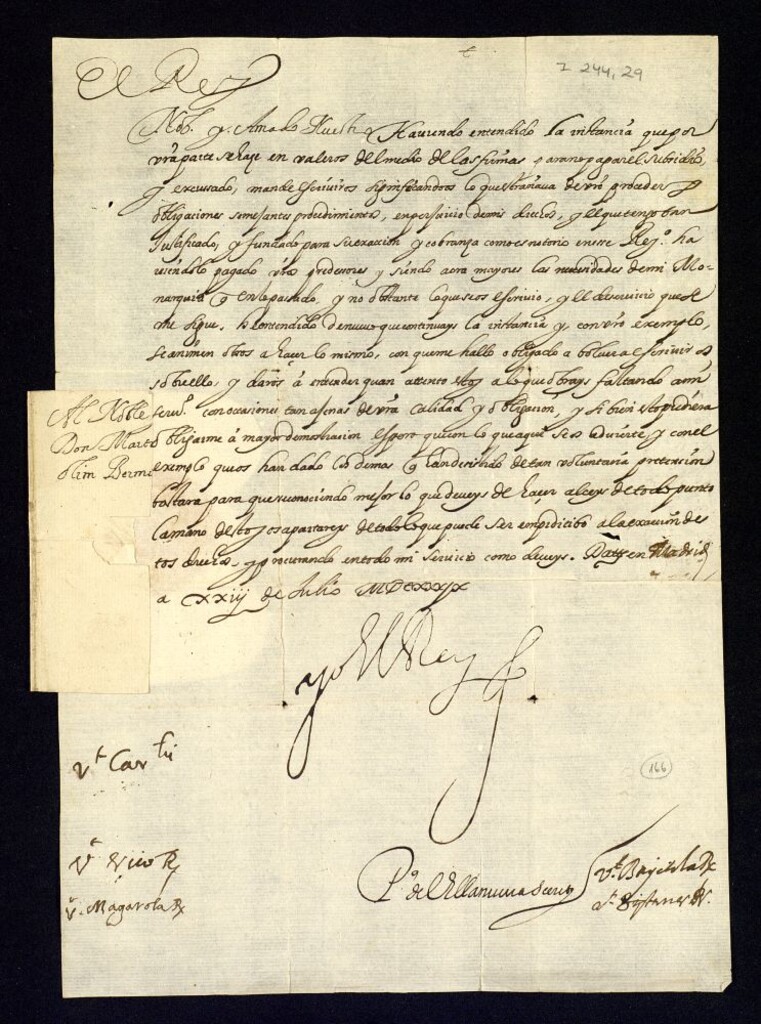 I 244,29
El Rey
Nob. y Amado Nuestro Haviendo entendido la instancia que por
vra parte se haze en valeros del medio de las firmas para no pagar el subsidio,
y excusado, mande escriviros lo que de vro proceder
obligaciones semejantes procedimientos, en perjuicio de mis y lo que tempo tan
Justificado, y fundado para su exaccion y cobranza como es notorio en esse Rey.o ha
viendolo pagado vros predecesores y siendo aora mayores las necesidades de mi Mo-
narquia q en lo pasado, y no obstante lo que se os escrivio, y el deservicio que se
me sigue. he entendido de nuevo que continuays la instancia y, con vro exemplo,
se animen otros a hazer lo mismo, con que me hallo obligado a bolver a escriviros
sobre ello, y daros à entender quan attento estoy a lo que obrays faltando a mi
serv.o con occasiones tan agenas de vra calidad y obligacion, y si bien esto pudiera
obligarme à mayor demostracion espero que con lo que aqui se os advierte y con el
exemplo que os han dado los demas q han desistido de tan voluntaria pretension
bastara para que reconociendo mejor lo que deveys de hazer alceys de todo punto
la mano desto y os apartareys de todo lo que puede ser a la exaccion des
tos y procurando en todo mi servicio como deveys. Datt en Madrid
a XXiij de Julio MDCXXXIX
Al Noble
Don
olim
yo El Rey
Vt Car
166
Vt Vico R
Vt Magarola R
P.o de Villanueva
Vt Bayetola R
Vt Sisternes R